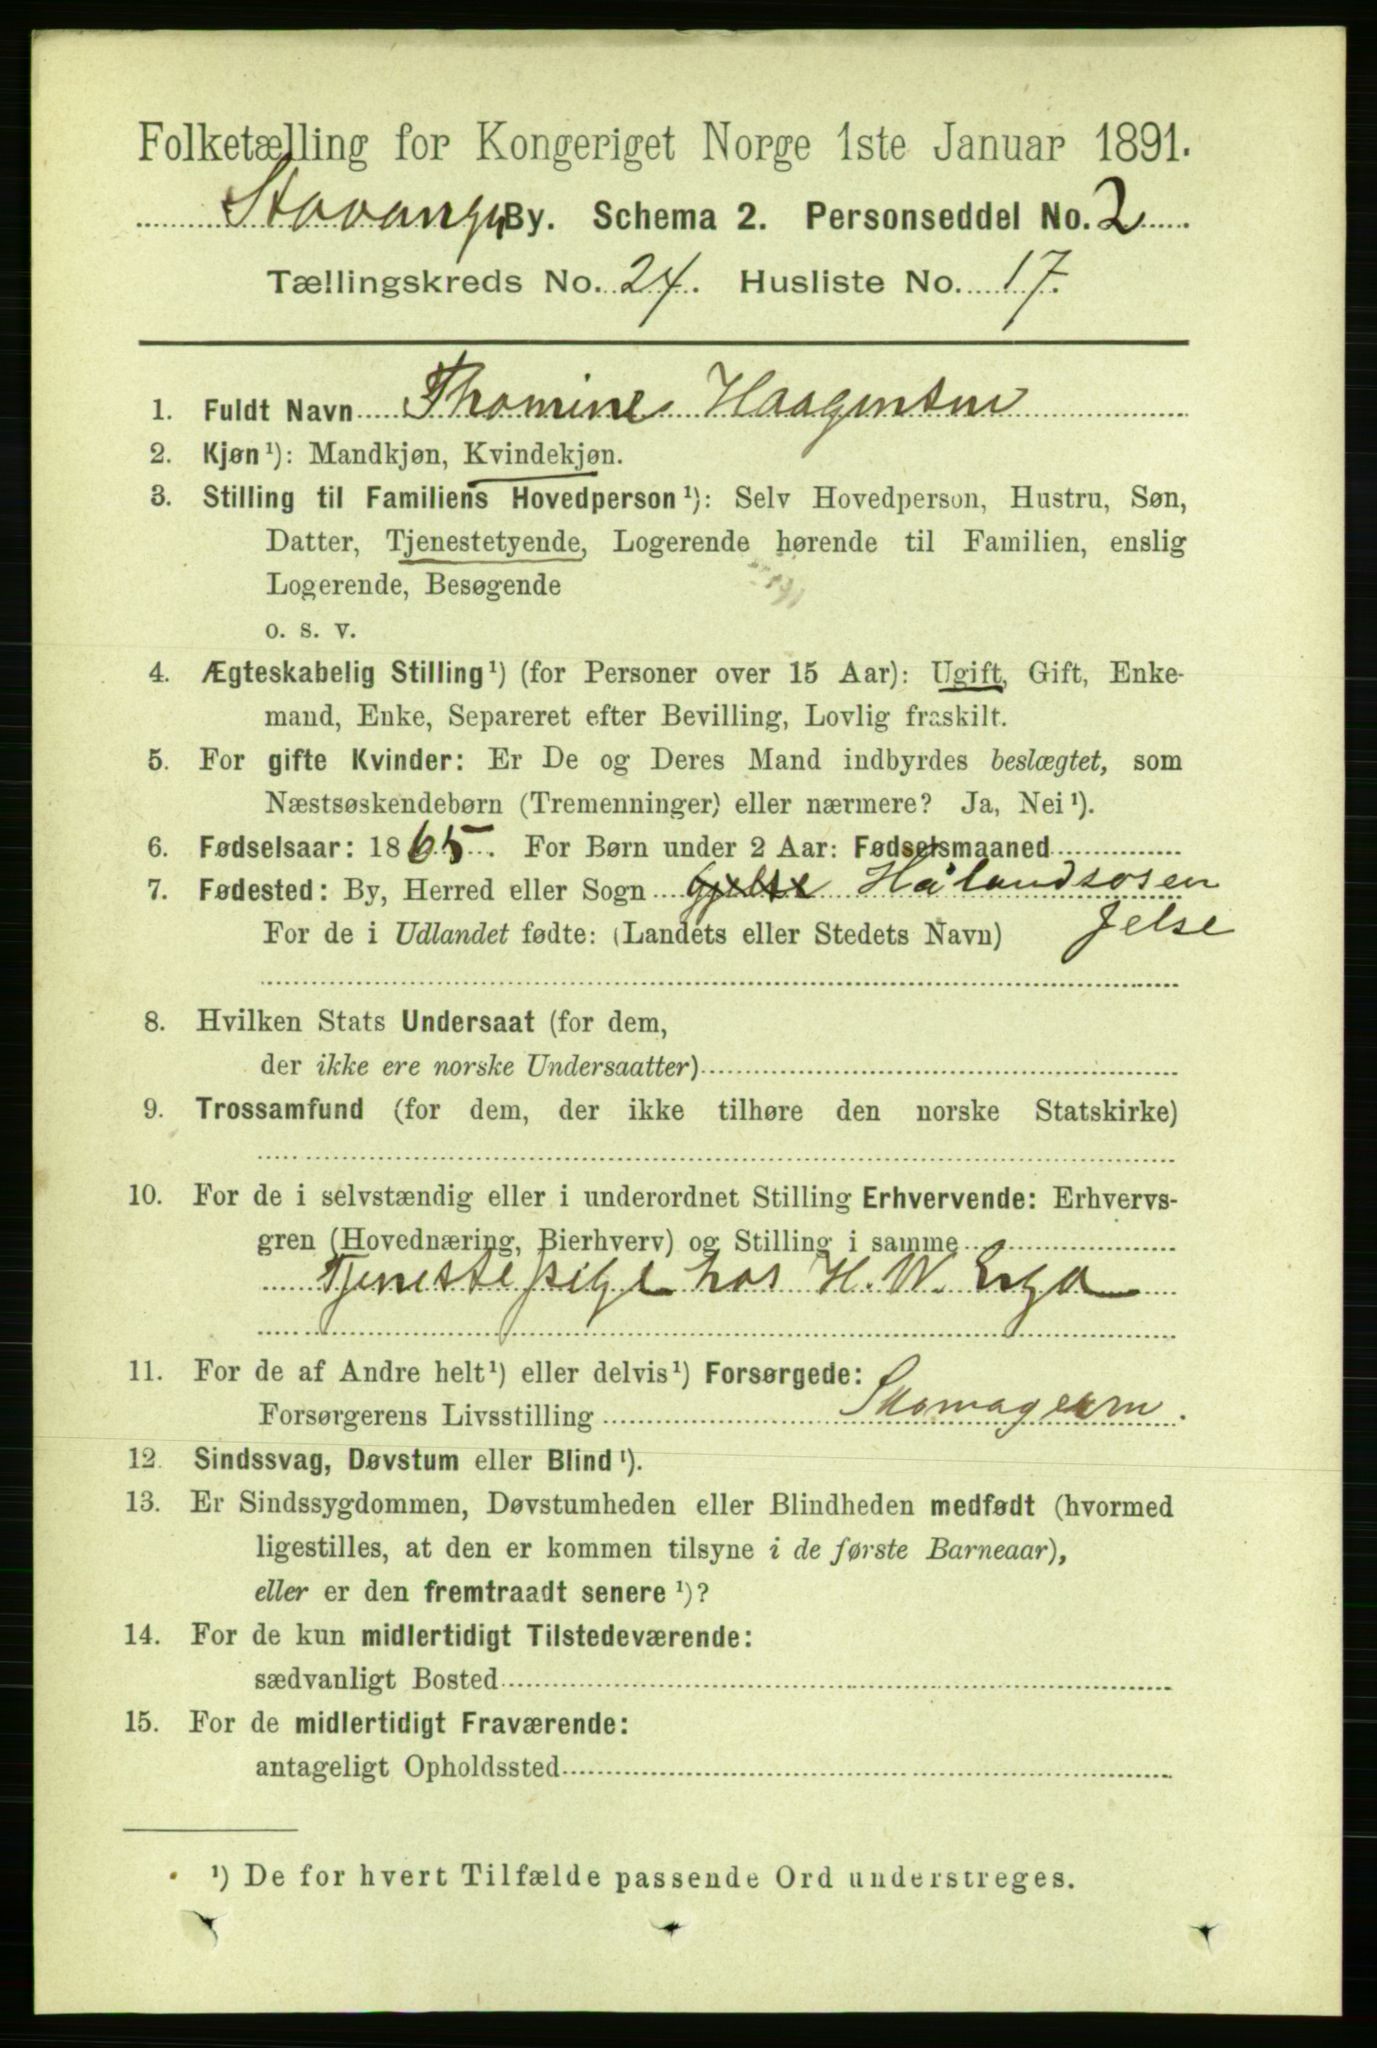 Folketælling for Kongeriget Norge 1ste Januar 1891.
Stavanger By. Schema 2. Personseddel No. 2
Tællingskreds No. 24. Husliste No. 17.
1. Fuldt Navn Thomine Haagensen
2. Kjøn¹): Mandkjøn, Kvindekjøn.
3. Stilling til Familiens Hovedperson¹): Selv Hovedperson, Hustru, Søn,
Datter, Tjenestetyende, Logerende hørende til Familien, enslig
Logerende, Besøgende
o. s. v.
4. Ægteskabelig Stilling¹) (for Personer over 15 Aar): Ugift, Gift, Enke-
mand, Enke, Separeret efter Bevilling, Lovlig fraskilt.
5. For gifte Kvinder: Er De og Deres Mand indbyrdes beslægtet, som
Næstsøskendebørn (Tremenninger) eller nærmere? Ja, Nei¹).
6. Fødselsaar: 1865. For Børn under 2 Aar: Fødselsmaaned
7. Fødested: By, Herred eller Sogn Gjelse Hålandsosen
For de i Udlandet fødte: (Landets eller Stedets Navn) Jelse
8. Hvilken Stats Undersaat (for dem,
der ikke ere norske Undersaatter)
9. Trossamfund (for dem, der ikke tilhøre den norske Statskirke)
10. For de i selvstændig eller i underordnet Stilling Erhvervende: Erhvervs-
gren (Hovednæring, Bierhverv) og Stilling i samme
Tjenestepige hos H. W. Erga
11. For de af Andre helt¹) eller delvis¹) Forsørgede:
Forsørgerens Livsstilling
12. Sindssvag, Døvstum eller Blind¹).
13. Er Sindssygdommen, Døvstumheden eller Blindheden medfødt (hvormed
ligestilles, at den er kommen tilsyne i de første Barneaar),
eller er den fremtraadt senere¹)?
14. For de kun midlertidigt Tilstedeværende:
sædvanligt Bosted
15. For de midlertidigt Fraværende:
antageligt Opholdssted
¹) De for hvert Tilfælde passende Ord understreges.